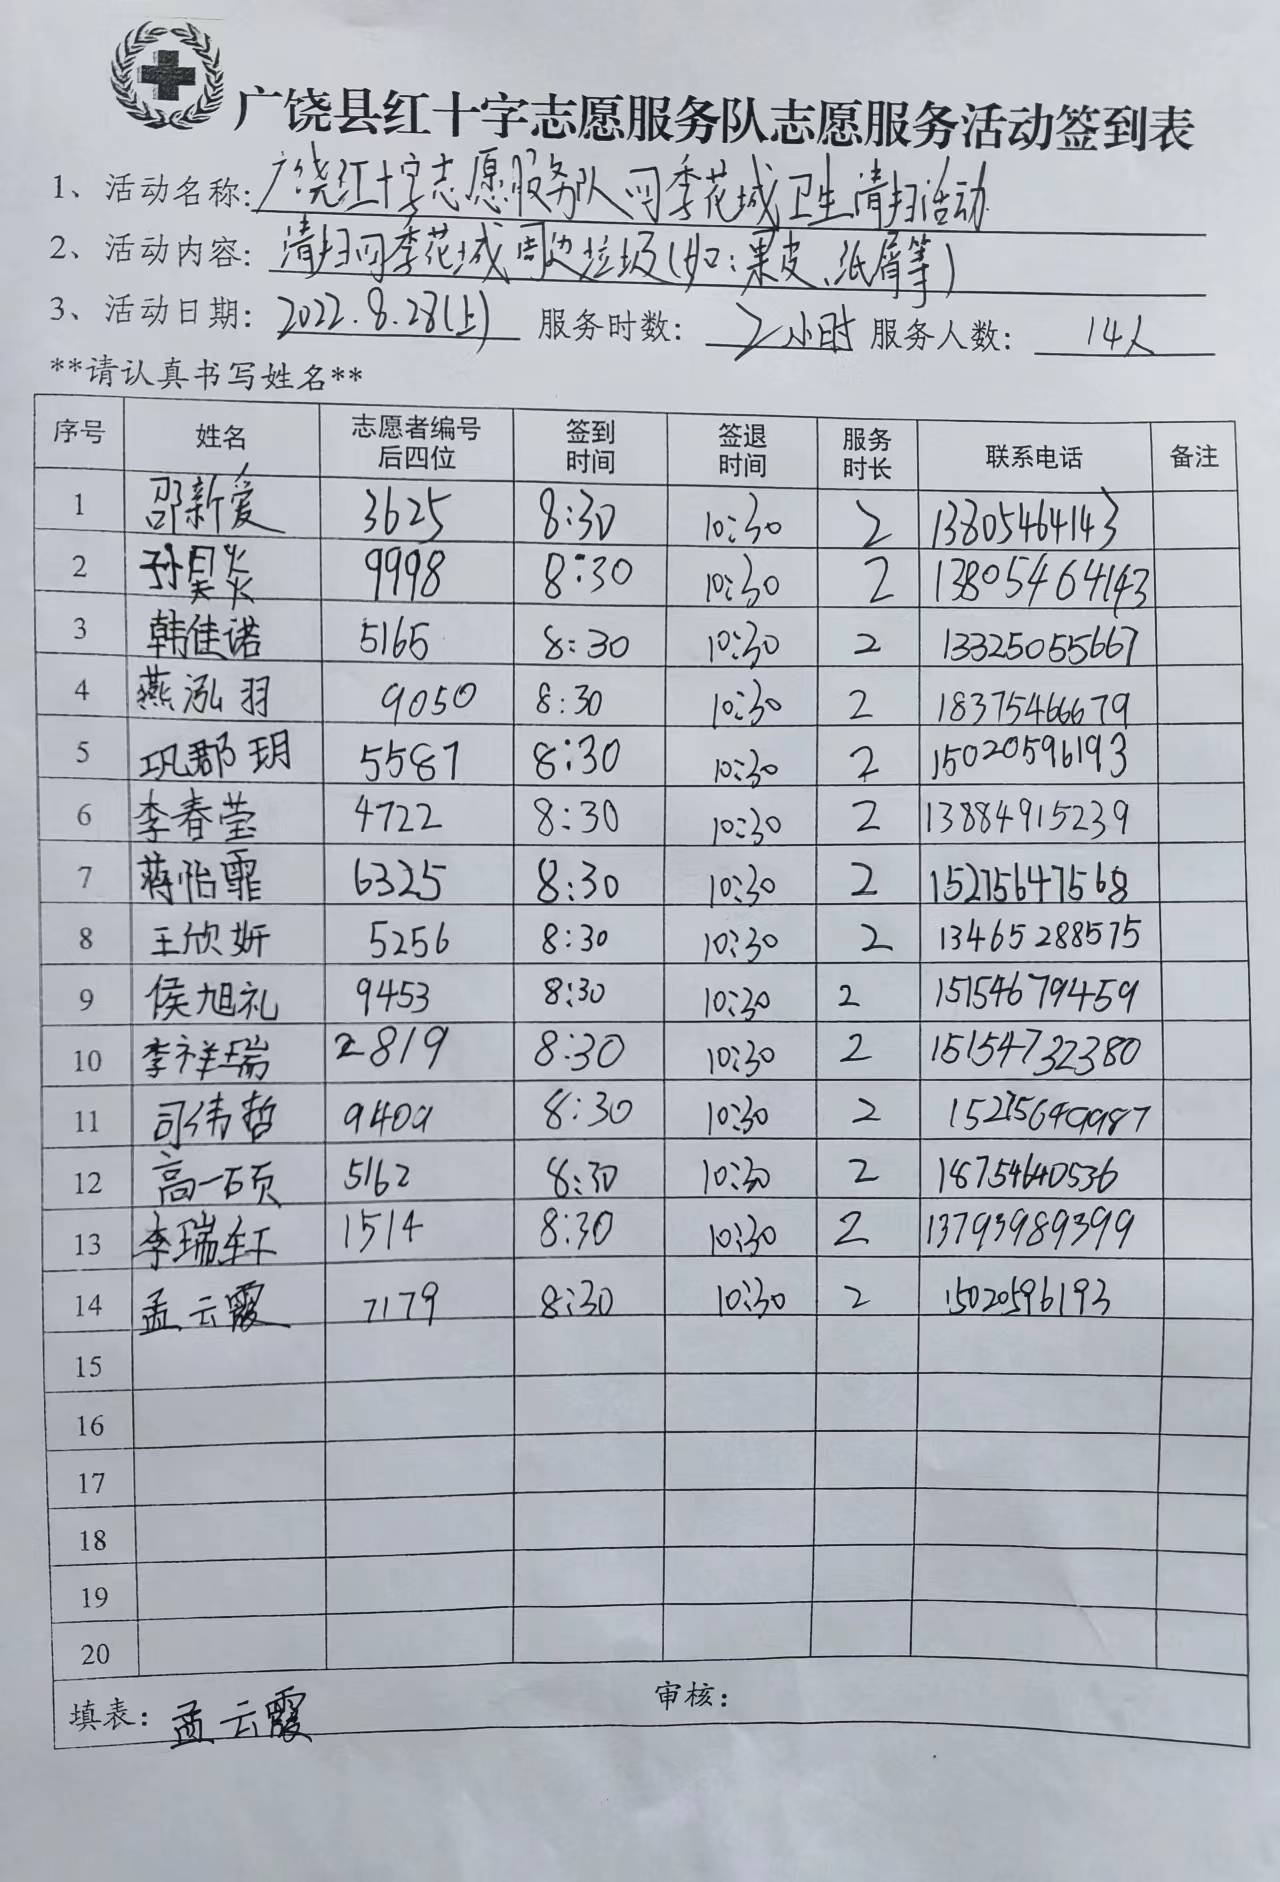 广饶县红十字志愿服务队志愿服务活动签到表
1、活动名称:广饶红十字志愿服务队四季花城卫生清扫活动
2、活动内容:清扫四季花城周边垃圾(如:果皮、纸屑等)
3、活动日期:2022.8.28(上) 服务时数:2小时 服务人数:14人
**请认真书写姓名**
序号 姓名 志愿者编号后四位 签到时间 签退时间 服务时长 联系电话 备注
1 邵新爱 3625 8:30 10:30 2 13805464143
2 孙昊焱 9998 8:30 10:30 2 13805464143
3 韩佳诺 5165 8:30 10:30 2 13325055667
4 燕泓羽 9050 8:30 10:30 2 18375466679
5 巩郡玥 5587 8:30 10:30 2 15020596193
6 李春莹 4722 8:30 10:30 2 13884915239
7 蒋怡霏 6325 8:30 10:30 2 15275647568
8 王欣妍 5256 8:30 10:30 2 13465288575
9 侯旭礼 9453 8:30 10:30 2 15154679459
10 李祥瑞 2819 8:30 10:30 2 15154732380
11 司伟哲 9409 8:30 10:30 2 15275649987
12 高一硕 5162 8:30 10:30 2 18754640536
13 李瑞轩 1514 8:30 10:30 2 13793989399
14 孟云霞 7179 8:30 10:30 2 15020596193
15
16
17
18
19
20
填表:孟云霞 审核: